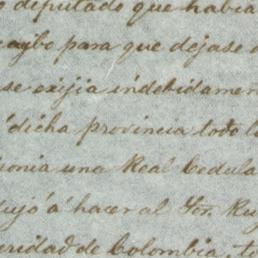 diputado que habia
para que dejase
se exijia indebidamen
á dicha provincia todo l
onia una Real Cedula
ujó á hacer al Sor. Ru
uridad de Colombia, t